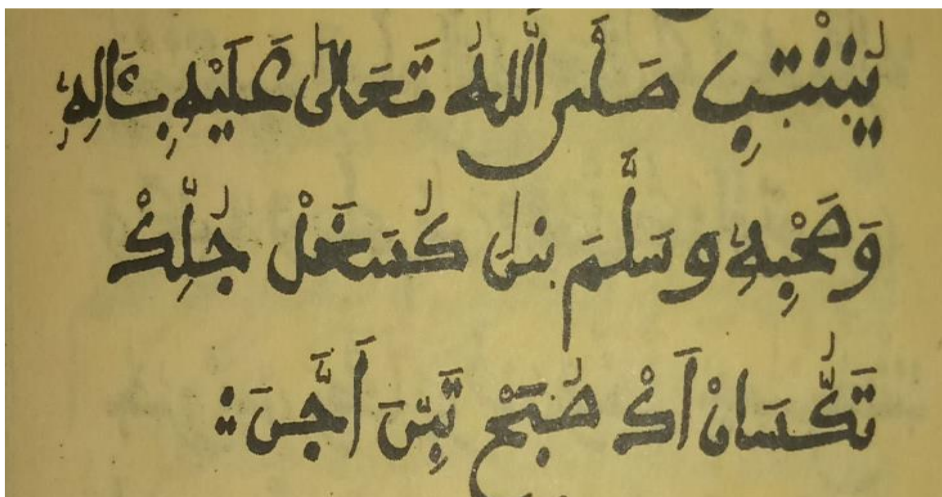 يُبَنْتِبِ صَلَّى اللَّهُ تَعَالَى عَلَيْهِ بِئَالِهِ
وَصَحْبِهِ وَسَلَّمَ بنَ كُسَخَلْ جُلِّكْ
تَكُّسَانْ اَكْ صُبَحْ تَبِّنَ اَجَّنَ